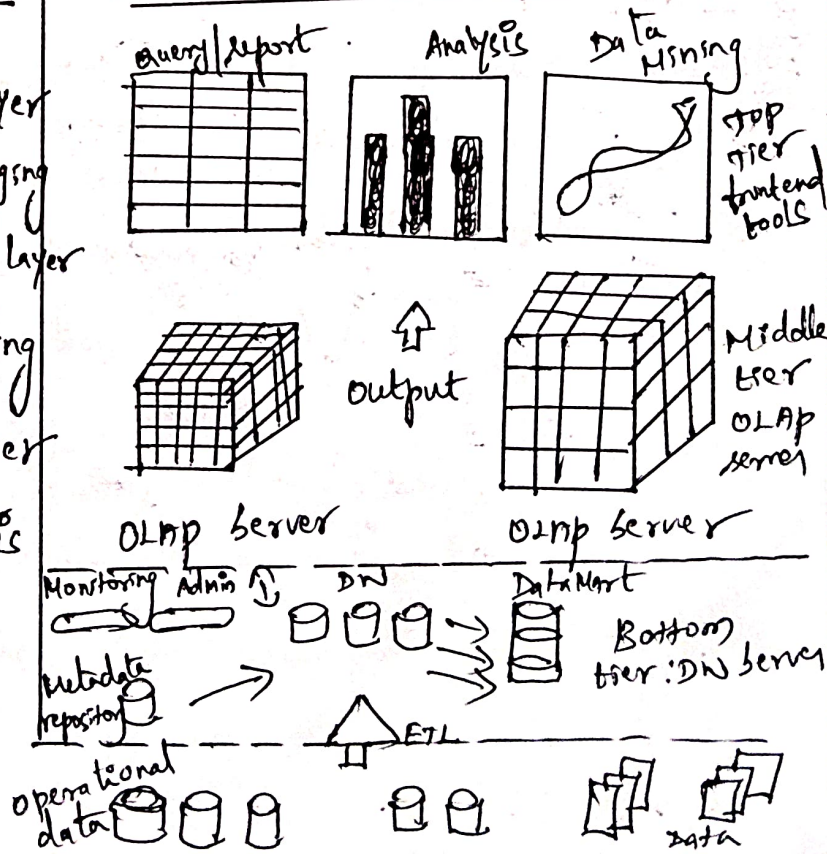 Query/report
Analysis
Data
Mining
yer
ging
Layer
ng
er
TOP
Tier
frontend
tools
Output
Middle
tier
OLAP
server
OLAP Server
OLAP Server
Monitoring Admin
DW
DataMart
Bottom
tier: DW Server
Metadata
repository
ETL
Operational
data
Data